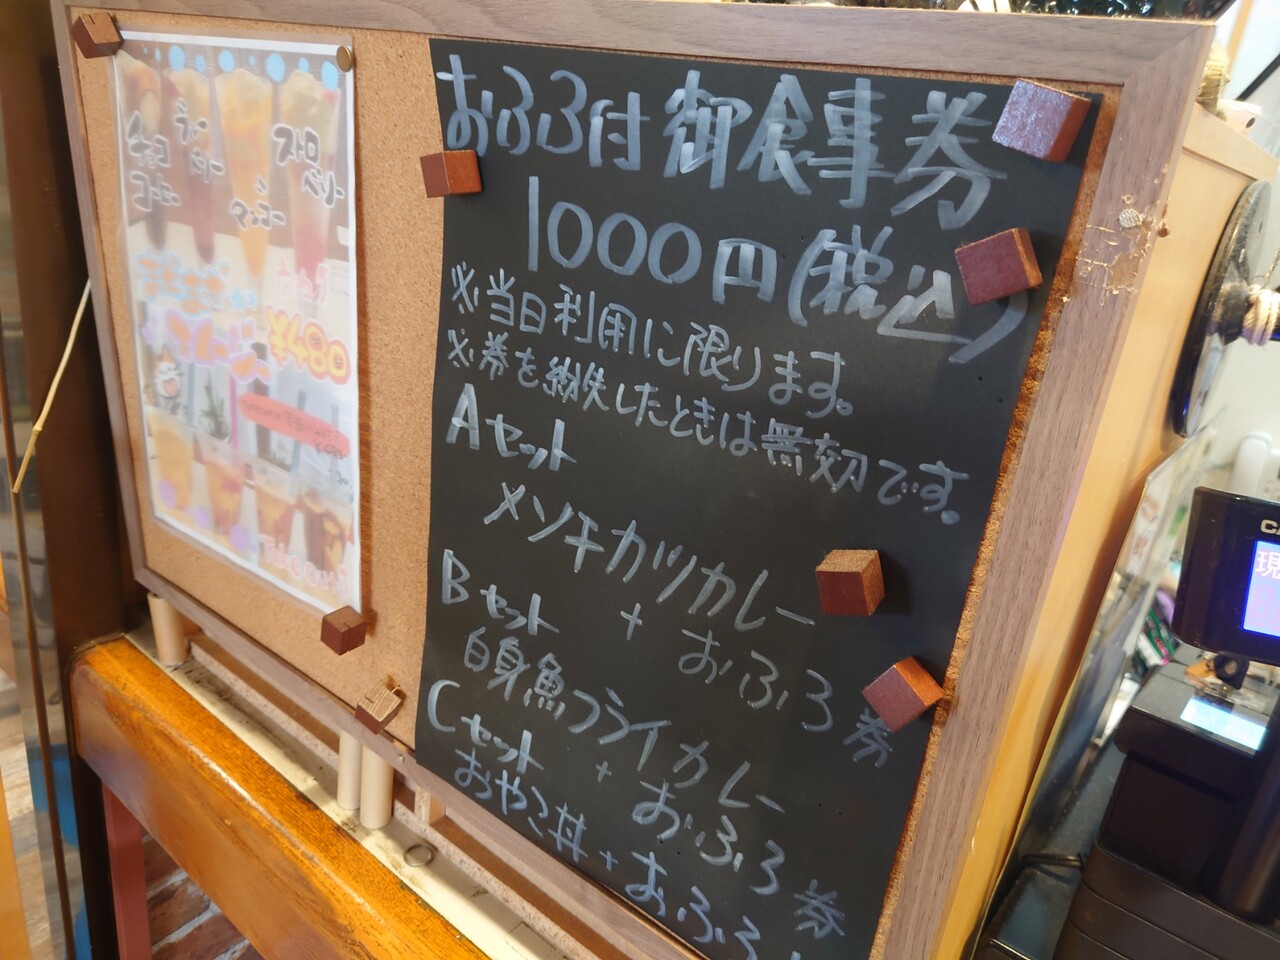 チョコ
コーヒー
ラズ
ベリー
マンゴー
ストロ
ベリー
¥480
Take out
おふろ付御食事券
1000円(税込)
※当日利用に限ります。
※券を紛失したときは無効です。
Aセット
メンチカツカレー
+ おふろ券
Bセット
白身魚フライカレー
+ おふろ券
Cセット
おやこ丼+おふろ
CA
現